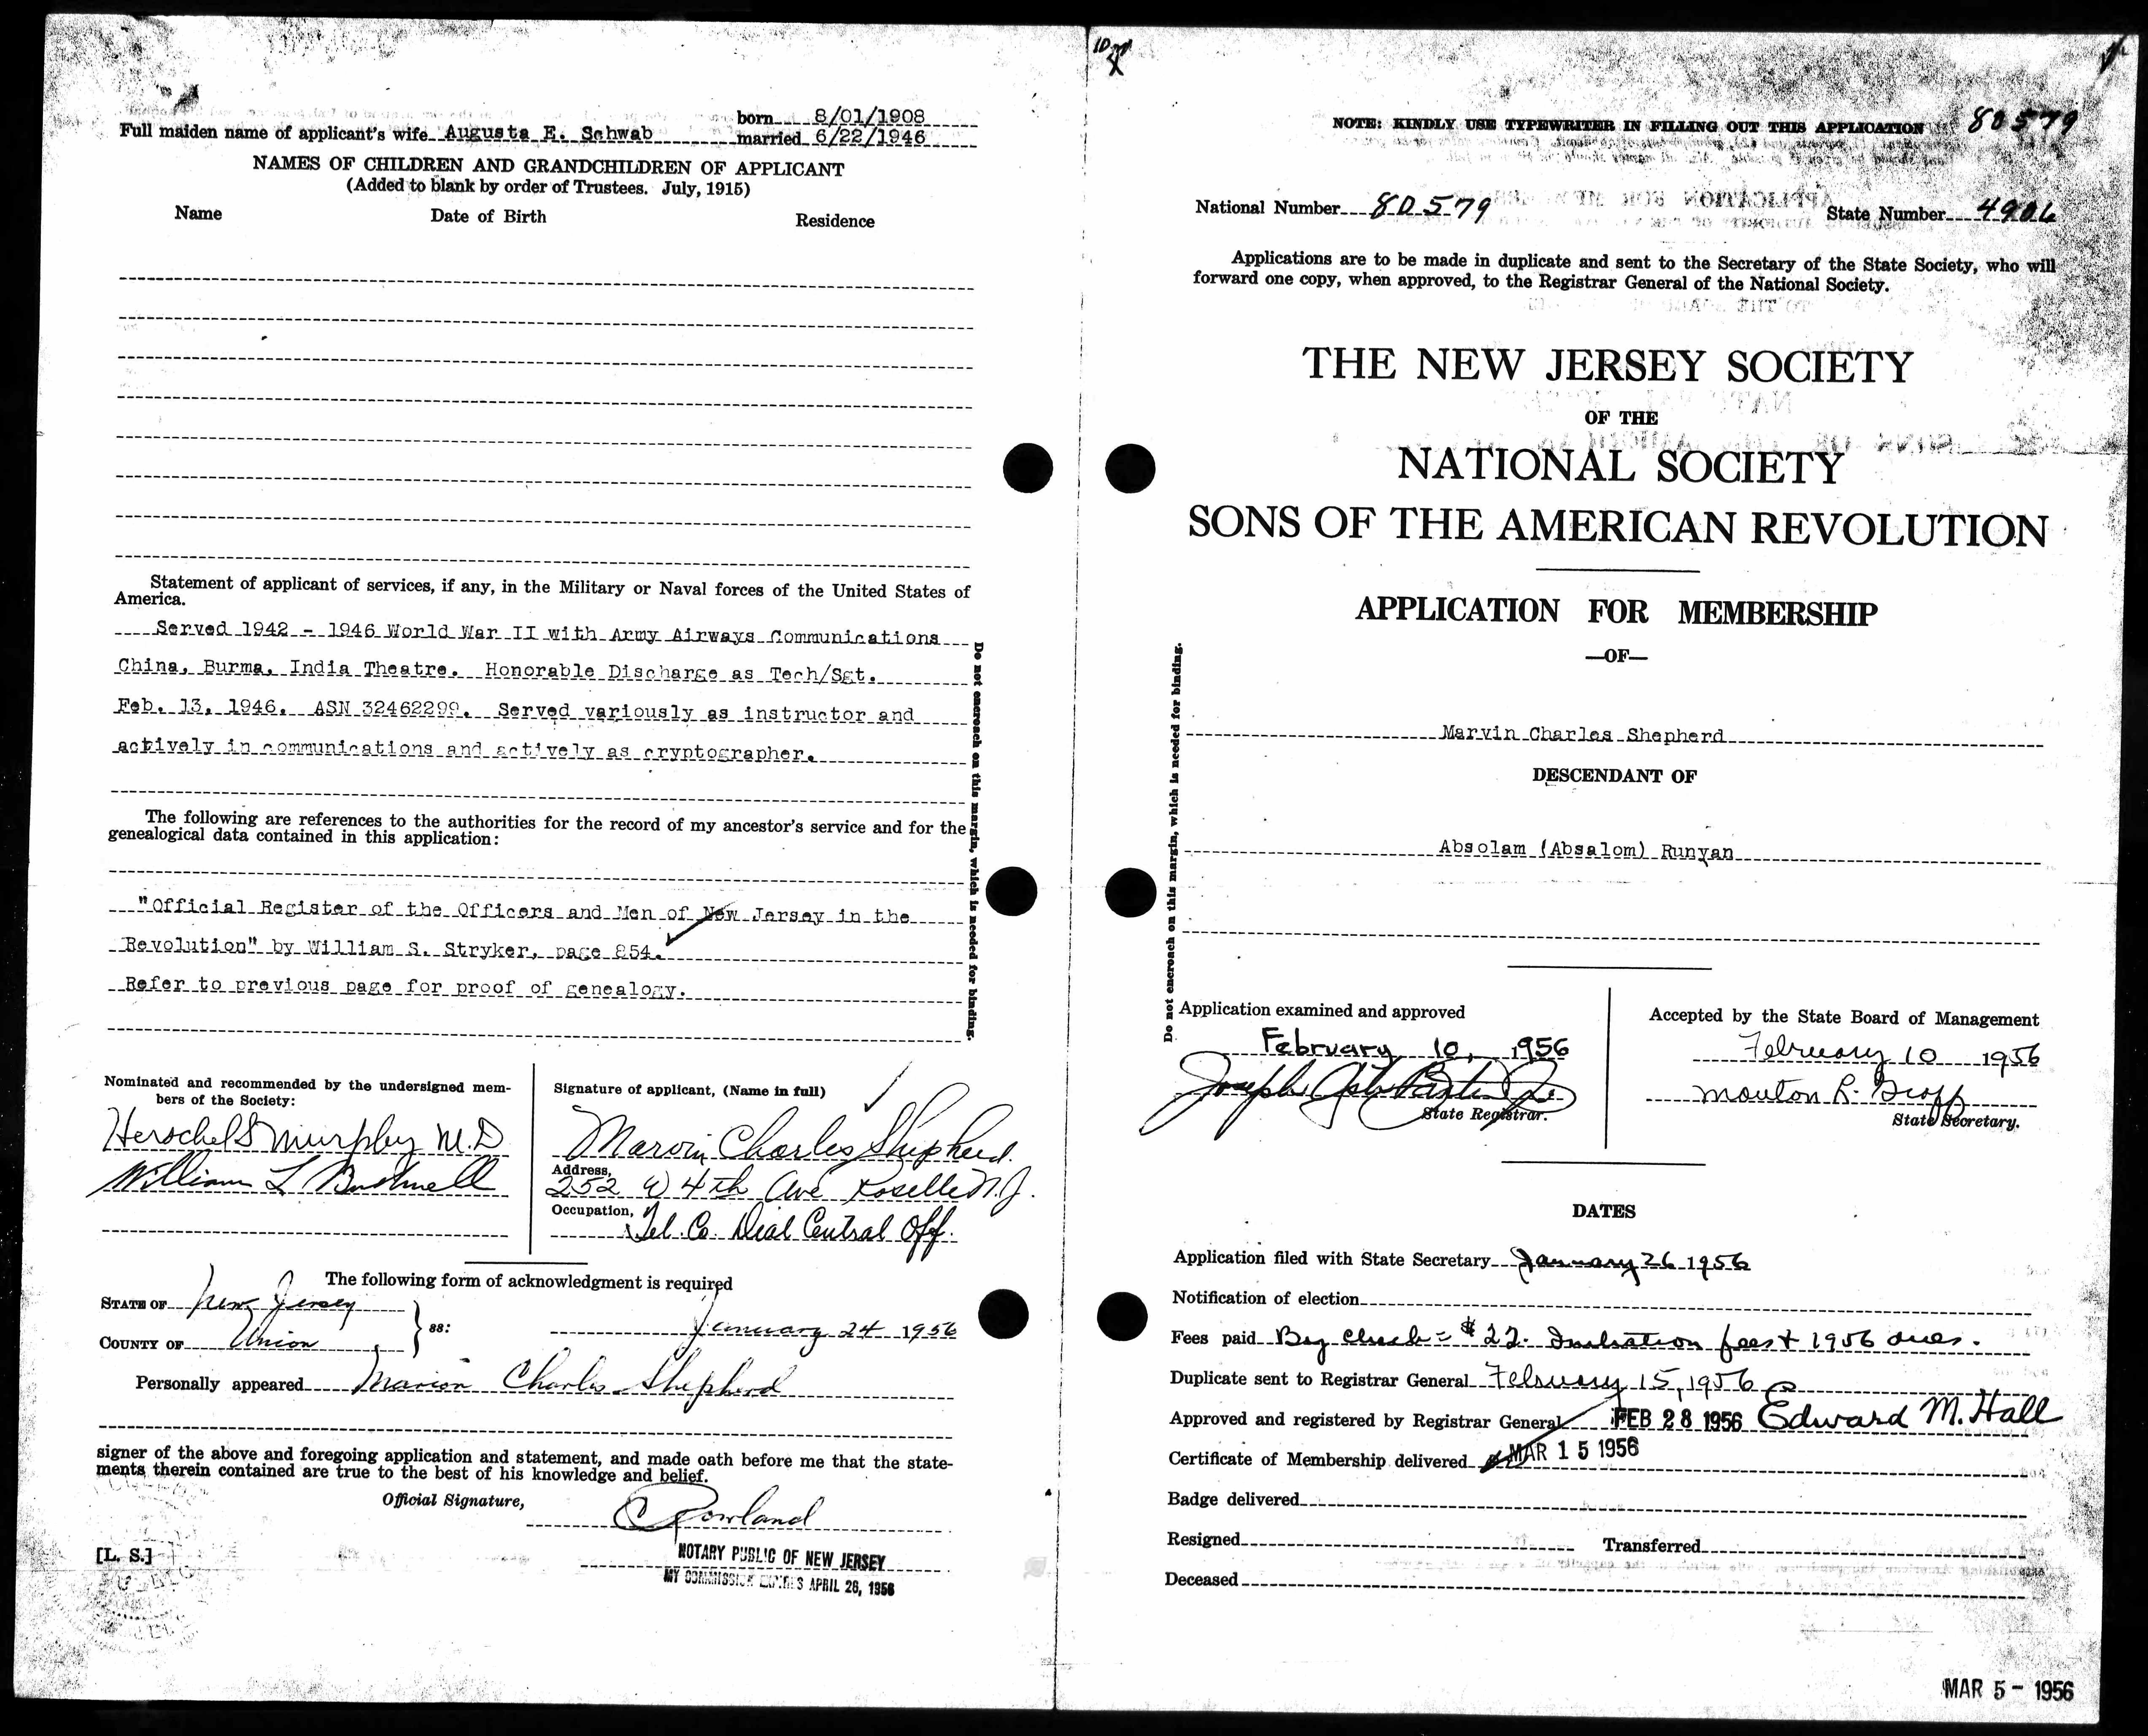 born 8/01/1908
Full maiden name of applicant's wife Augusta E. Schwab married 6/22/1946
NAMES OF CHILDREN AND GRANDCHILDREN OF APPLICANT
(Added to blank by order of Trustees. July, 1915)
Name Date of Birth Residence
Statement of applicant of services, if any, in the Military or Naval forces of the United States of
America.
Served 1942 - 1946 World War II with Army Airways Communications
China, Burma, India Theatre. Honorable Discharge as Tech/Sgt.
Feb. 13, 1946. ASN 32462299. Served variously as instructor and
actively in communications and actively as cryptographer.
The following are references to the authorities for the record of my ancestor's service and for the
genealogical data contained in this application:
"Official Register of the Officers and Men of New Jersey in the
Revolution" by William S. Stryker, page 854.
Refer to previous page for proof of genealogy.
Do not encroach on this margin, which is needed for binding.
Nominated and recommended by the undersigned mem-
bers of the Society:
Herschel S Murphy M.D
William L Bushnell
Signature of applicant, (Name in full)
Marvin Charles Shepherd
Address,
252 W 4th Ave Roselle N.J.
Occupation,
Tel. Co. Dial Central Off.
The following form of acknowledgment is required
STATE OF New Jersey
ss: January 24 1956
COUNTY OF Union
Personally appeared Marvin Charles Shepherd
signer of the above and foregoing application and statement, and made oath before me that the state-
ments therein contained are true to the best of his knowledge and belief.
Official Signature,
C Rowland
[L. S.]
NOTARY PUBLIC OF NEW JERSEY
MY COMMISSION EXPIRES APRIL 26, 1956
NOTE: KINDLY USE TYPEWRITER IN FILLING OUT THIS APPLICATION 80579
National Number 80579 State Number 4906
Applications are to be made in duplicate and sent to the Secretary of the State Society, who will
forward one copy, when approved, to the Registrar General of the National Society.
THE NEW JERSEY SOCIETY
OF THE
NATIONAL SOCIETY
SONS OF THE AMERICAN REVOLUTION
APPLICATION FOR MEMBERSHIP
—OF—
Marvin Charles Shepherd
DESCENDANT OF
Absolam (Absalom) Runyan
Do not encroach on this margin, which is needed for binding.
Application examined and approved
February 10, 1956
Joseph
State Registrar.
Accepted by the State Board of Management
February 10 1956
Mouton R. Groff
State Secretary.
DATES
Application filed with State Secretary January 26 1956
Notification of election
Fees paid By Check = $22. Initiation fees + 1956 dues.
Duplicate sent to Registrar General February 15, 1956
Approved and registered by Registrar General FEB 28 1956 Edward M. Hall
Certificate of Membership delivered MAR 15 1956
Badge delivered
Resigned Transferred
Deceased
MAR 5 - 1956